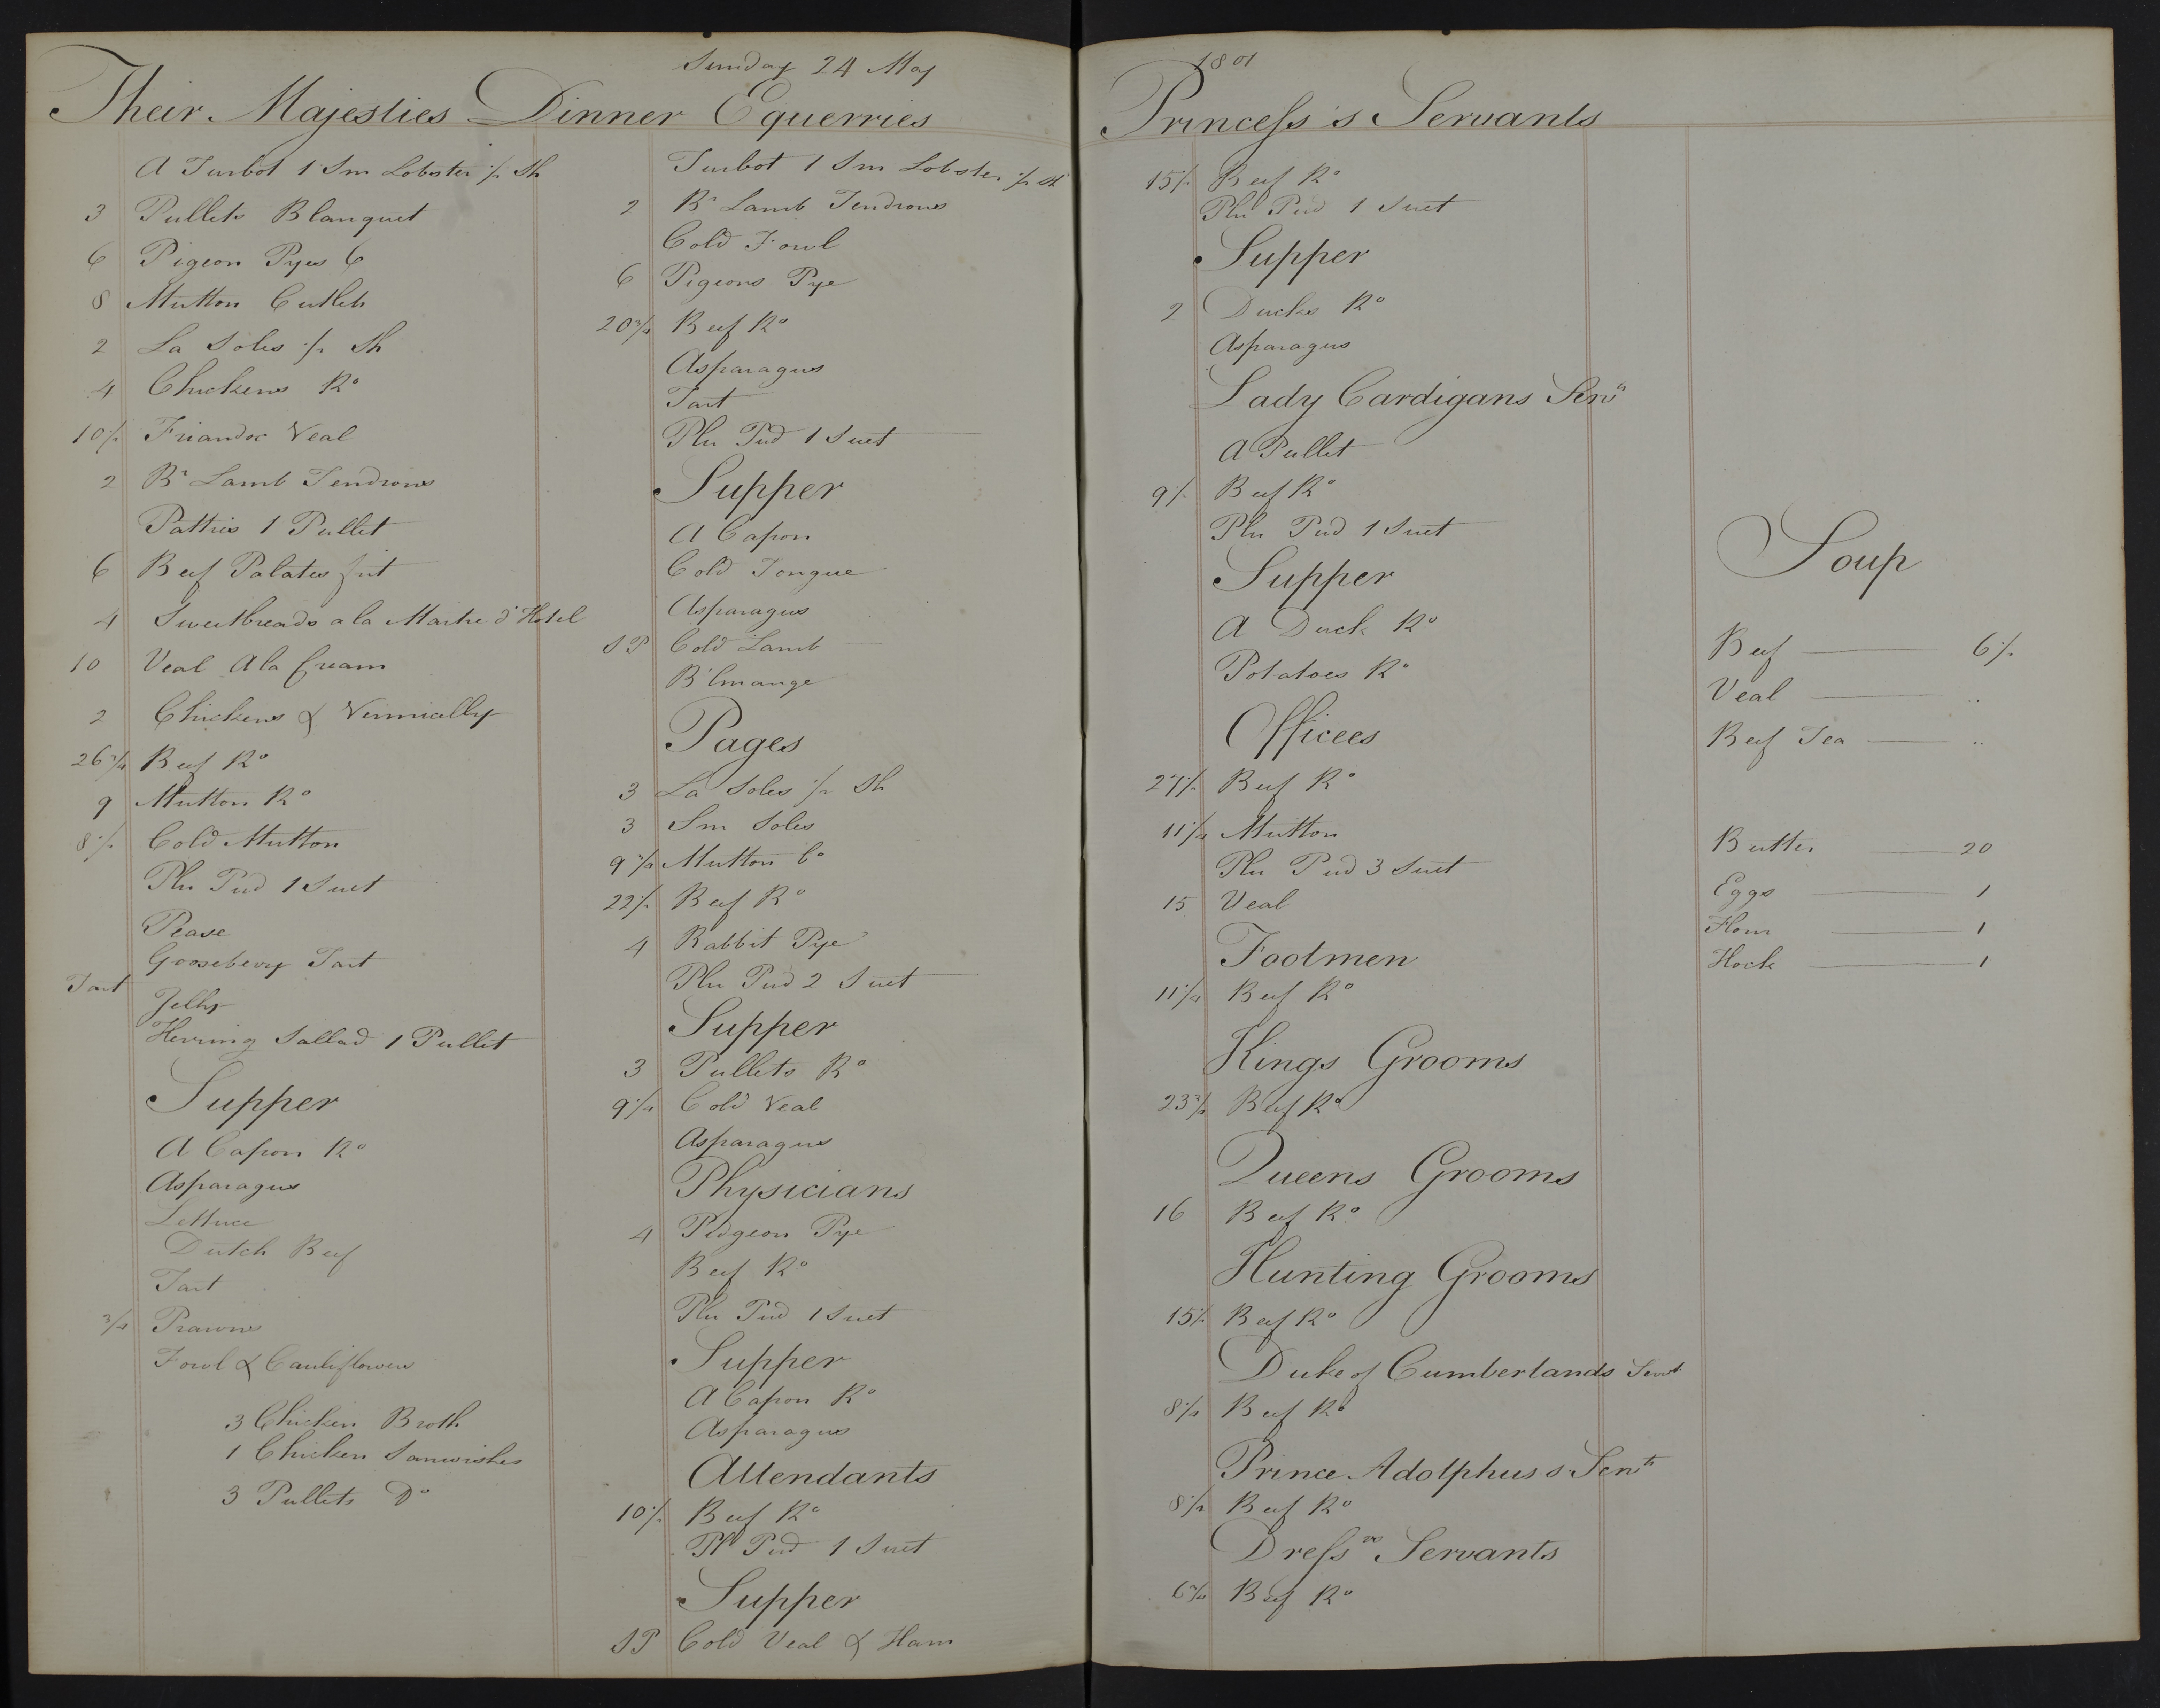 Sunday 24 May
1801
Their Majesties Dinner
A Turbot 1 Sm Lobster /. Sh
3 Pullets Blanquet
6 Pigeon Pyes 6
8 Mutton Cutlets
2 La Soles /. Sh
4 Chickens Ro
10 Friandx Veal
2 Br Lamb Tendrons
Patties 1 Pullet
6 Beef Palates
4 Sweetbreads a la Maitre d'Hotel
10 Veal A la Cream
2 Chickens & Vermically
26 Beef Ro
9 Mutton Ro
8 Cold Mutton
Plu Pud 1 Suet
Pease
Gooseberry Tart
Tart Jelly
Herring Sallad 1 Pullet
Supper
A Capon Ro
Asparagus
Lettuce
Dutch Beef
Tart
Prawns
Fowl & Cauliflower
3 Chicken Broth
1 Chicken Sanwishes
3 Pullets Do
Equerries
Turbot 1 Sm Lobster /. Sh
2 Br Lamb Tendrons
Cold Fowl
6 Pigeons Pye
20 Beef Ro
Asparagus
Tart
Plu Pud 1 Suet
Supper
A Capon
Cold Tongue
Asparagus
SP Cold Lamb
B'lmange
Pages
3 La Soles /. Sh
3 Sm Soles
9 Mutton Co
22 Beef Ro
4 Rabbit Pye
Plu Pud 2 Suet
Supper
3 Pullets Ro
9 Cold Veal
Asparagus
Physicians
4 Pidgeon Pye
Beef Ro
Plu Pud 1 Suet
Supper
A Capon Ro
Asparagus
Attendants
10 Beef Ro
Pl Pud 1 Suet
Supper
SP Cold Veal & Ham
Princess's Servants
15 Beef Ro
Plu Pud 1 Suet
Supper
2 Ducks Ro
Asparagus
Lady Cardigans Servs
A Pullet
9 Beef Ro
Plu Pud 1 Suet
Supper
A Duck Ro
Potatoes Ro
Officees
27 Beef Ro
11 Mutton
Plu Pud 3 Suet
15 Veal
Footmen
11 Beef Ro
Kings Grooms
23 Beef Ro
Queens Grooms
16 Beef Ro
Hunting Grooms
15 Beef Ro
Duke of Cumberlands Servt
8 Beef Ro
Prince Adolphus s Servts
8 Beef Ro
Dress Servants
6 Beef Ro
Soup
Beef 6
Veal ..
Beef Tea ..
Butter 20
Eggs 1
Flour 1
Hock 1